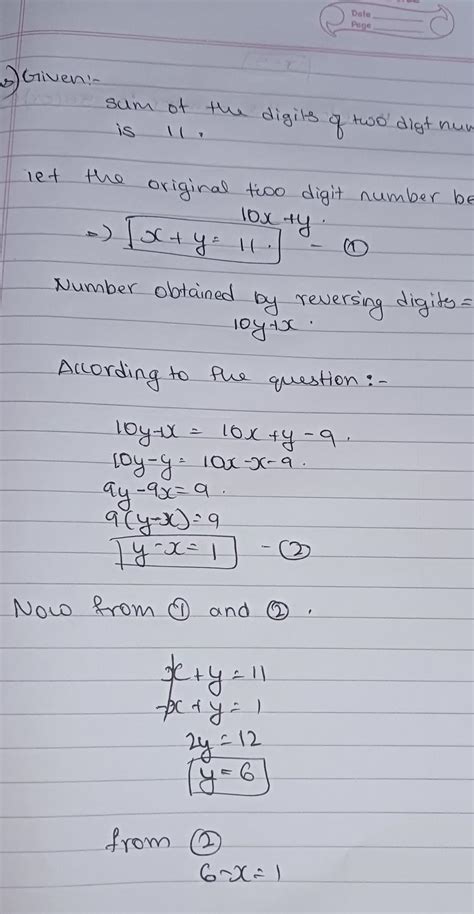 Date
Page
Given:-
sum of the digits of two digt num
is 11.
let the original two digit number be
10x+y.
=) x+y=11. - ①
Number obtained by reversing digits=
10y+x.
According to the question:-
10y+x = 10x+y-9.
10y-y= 10x-x-9.
9y-9x=9.
9(y-x)=9
y-x=1 -②
Now from ① and ②.
x+y=11
-x+y=1
2y=12
y=6
from ②
6-x=1